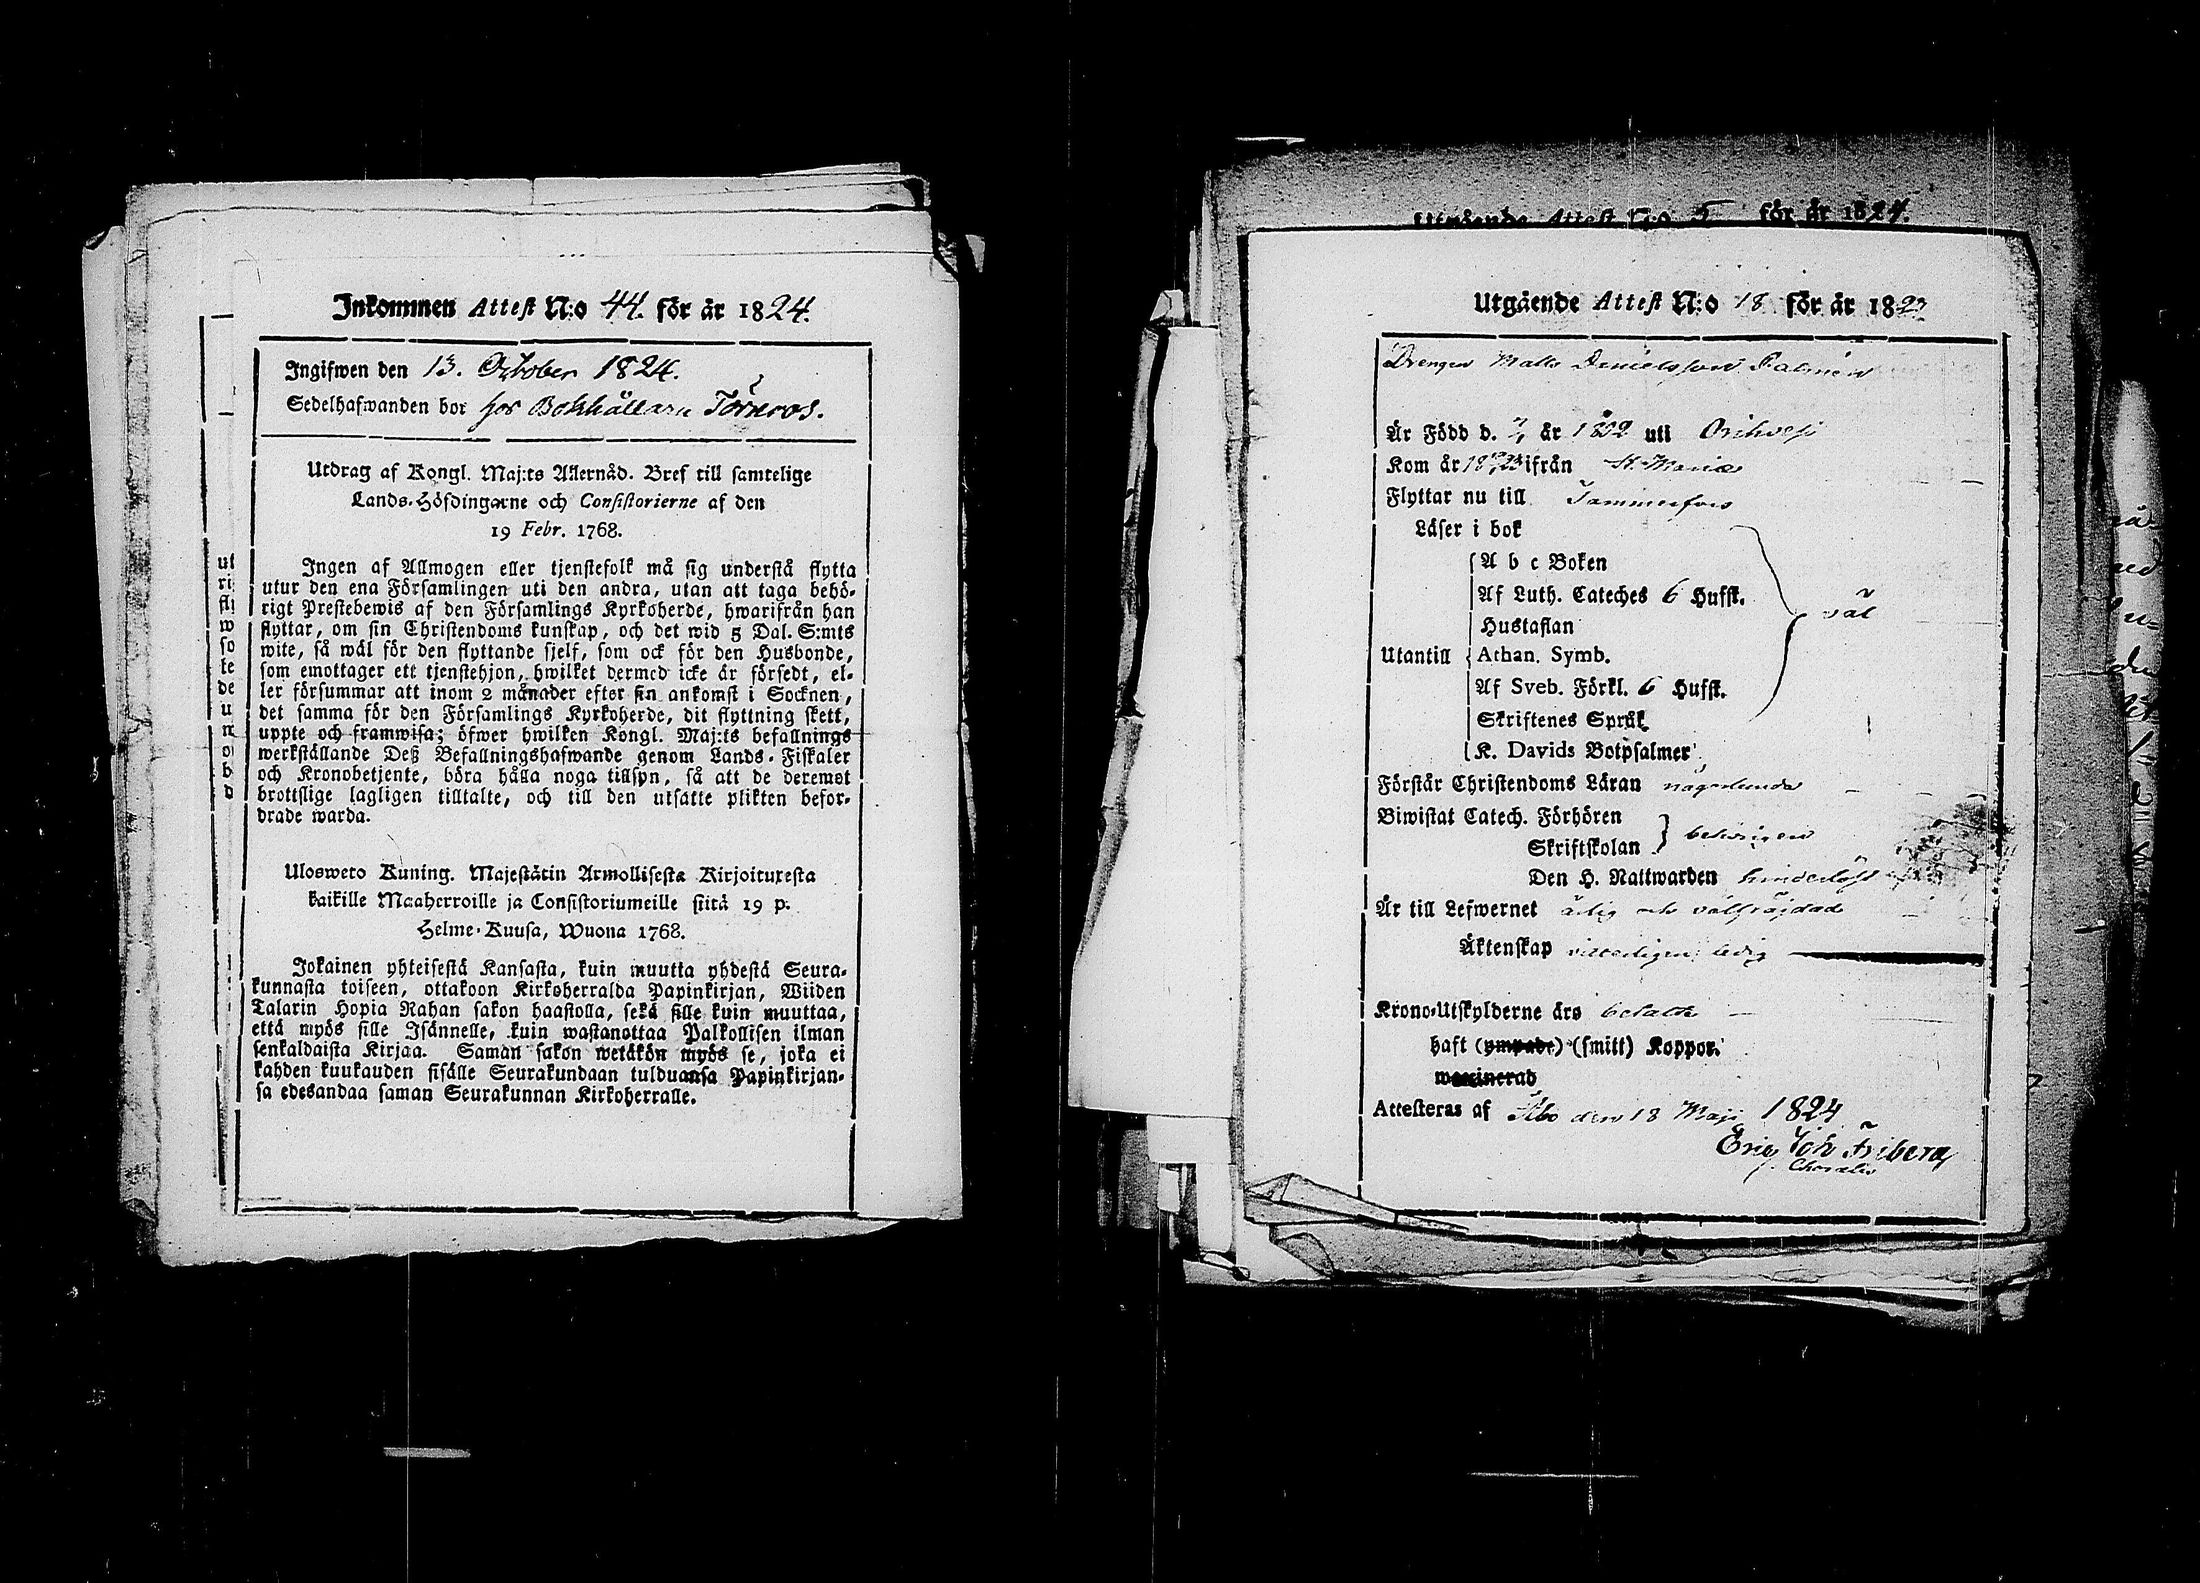 Inkommen Attest N:o 44. för år 1824.
Ingifwen den 13. October 1824.
Sedelhafwanden bor hos Bokhållaren Törneros.
Utdrag af Kongl. Maj:ts Allernåd. Bref till samtelige
Lands-Höfdingarne och Consistorierne af den
19 Febr. 1768.
Ingen af Allmogen eller tjenstefolk må sig understå flytta
utur den ena Församlingen uti den andra, utan att taga behö-
rigt Prestebewis af den Församlings Kyrkoherde, hwarifrån han
flyttar, om sin Christendoms kunskap, och det wid 5 Dal. S:mts
wite, så wäl för den flyttande sjelf, som ock för den Husbonde,
som emottager ett tjenstehjon, hwilket dermed icke är försedt, el-
ler försummar att inom 2 månader efter sin ankomst i Socknen,
det samma för den Församlings Kyrkoherde, dit flyttning skett,
uppte och framwisa; öfwer hwilken Kongl. Maj:ts befallnings
werkställande Deß Befallningshafwande genom Lands-Fiskaler
och Kronobetjente, böra hålla noga tillsyn, så att de deremot
brottslige lagligen tilltalte, och till den utsatte plikten befor-
drade warda.
Ulosweto Kuning. Majestätin Armollisesta Kirjoituxesta
kaikille Maaherroille ja Consistoriumeille siitä 19 p.
Helme-Kuusa, Wuona 1768.
Jokainen yhteisestä Kansasta, kuin muutta yhdestä Seura-
kunnasta toiseen, ottakoon Kirkoherralda Papinkirjan, Wiiden
Talarin Hopia Rahan sakon haastolla, sekä sille kuin muuttaa,
että myös sille Isännelle, kuin wastanottaa Palkollisen ilman
senkaldaista Kirjaa. Saman sakon wetäkön myös se, joka ei
kahden kuukauden sisälle Seurakundaan tulduansa Papinkirjan-
sa edesandaa saman Seurakunnan Kirkoherralle.
Utgående Attest N:o 5 för år 1824.
Utgående Attest N:o 18 för år 1823
Drengen Matts Danielsson Palmén
Är Född d. år 1802 uti Orihvesi
Kom år 1823 ifrån St. Mariæ
Flyttar nu till Tammerfors
Läser i bok
A b c Boken
Af Luth. Cateches 6 Hufst.
Hustaflan
väl
Utantill Athan. Symb.
Af Sveb. Förkl. 6 Hufst.
Skriftenes Språk
K. Davids Botpsalmer
Förstår Christendoms Läran någorlunda
Biwistat Catech. Förhören
Skriftskolan behörigen
Den H. Nattwarden hinderlöst
Är till Lefwernet ärlig och välfräjdad
Äktenskap vitterligen ledig
Krono-Utskylderne äro betalte
haft (ympade) (smitt) Koppor.
waccinerad
Attesteras af Åbo den 18 Maji 1824
Eric Joh Friberg